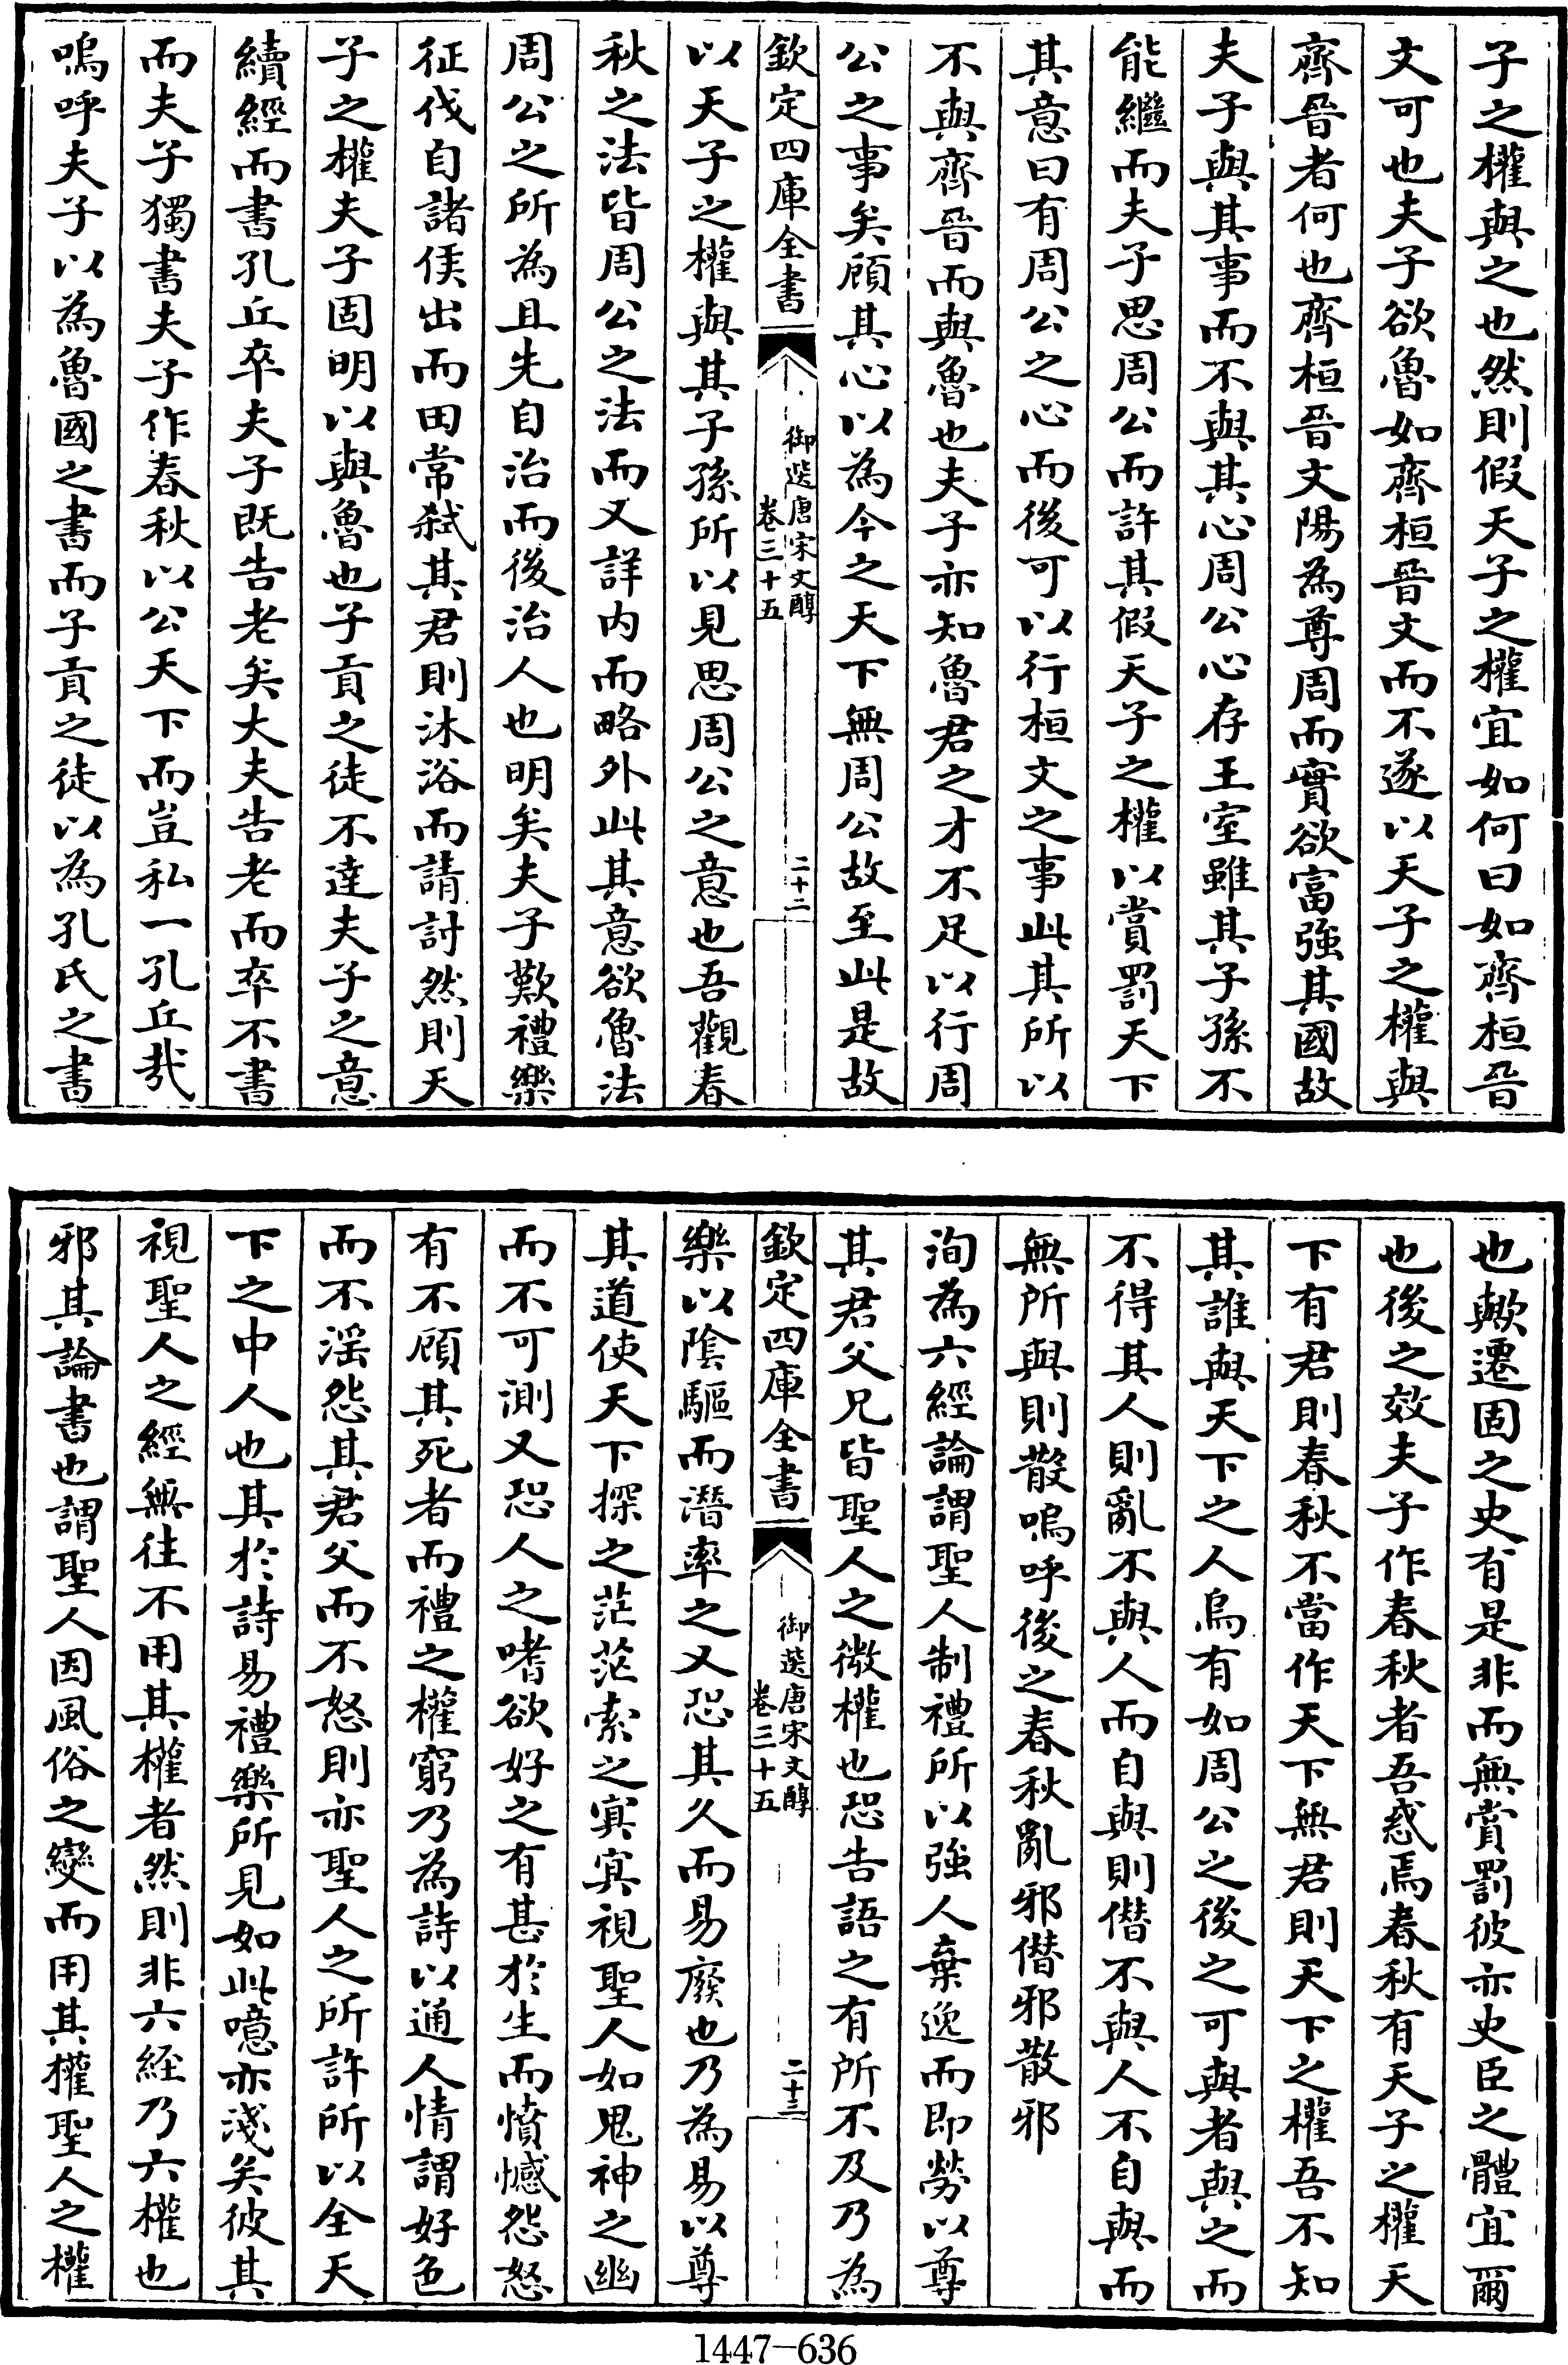 子之權與之也然則假天子之權宜如何曰如齊桓晉
文可也夫子欲魯如齊桓晉文而不遂以天子之權與
齊晉者何也齊桓晉文陽為尊周而實欲富強其國故
夫子與其事而不與其心周公心存王室雖其子孫不
能繼而夫子思周公而許其假天子之權以賞罰天下
其意曰有周公之心而後可以行桓文之事此其所以
不與齊晉而與魯也夫子亦知魯君之才不足以行周
公之事矣顧其心以為今之天下無周公故至此是故
欽定四庫全書
御選唐宋文醇
卷三十五
二十二
以天子之權與其子孫所以見思周公之意也吾觀春
秋之法皆周公之法而又詳內而略外此其意欲魯法
周公之所為且先自治而後治人也明矣夫子歎禮樂
征伐自諸侯出而田常弒其君則沐浴而請討然則天
子之權夫子固明以與魯也子貢之徒不達夫子之意
續經而書孔丘卒夫子既告老矣大夫告老而卒不書
而夫子獨書夫子作春秋以公天下而豈私一孔丘哉
嗚呼夫子以為魯國之書而子貢之徒以為孔氏之書
也歟遷固之史有是非而無賞罰彼亦史臣之體宜爾
也後之效夫子作春秋者吾惑焉春秋有天子之權天
下有君則春秋不當作天下無君則天下之權吾不知
其誰與天下之人烏有如周公之後之可與者與之而
不得其人則亂不與人而自與則僭不與人不自與而
無所與則散嗚呼後之春秋亂邪僭邪散邪
洵為六經論謂聖人制禮所以強人棄逸而即勞以尊
其君父兄皆聖人之微權也恐告語之有所不及乃為
欽定四庫全書
御選唐宋文醇
卷三十五
二十三
樂以陰驅而潛率之又恐其久而易廢也乃為易以尊
其道使天下探之茫茫索之冥冥視聖人如鬼神之幽
而不可測又恐人之嗜欲好之有甚於生而憤憾怨怒
有不顧其死者而禮之權窮乃為詩以通人情謂好色
而不淫怨其君父而不怒則亦聖人之所許所以全天
下之中人也其於詩易禮樂所見如此噫亦淺矣彼其
視聖人之經無往不用其權者然則非六經乃六權也
邪其論書也謂聖人因風俗之變而用其權聖人之權
1447-636